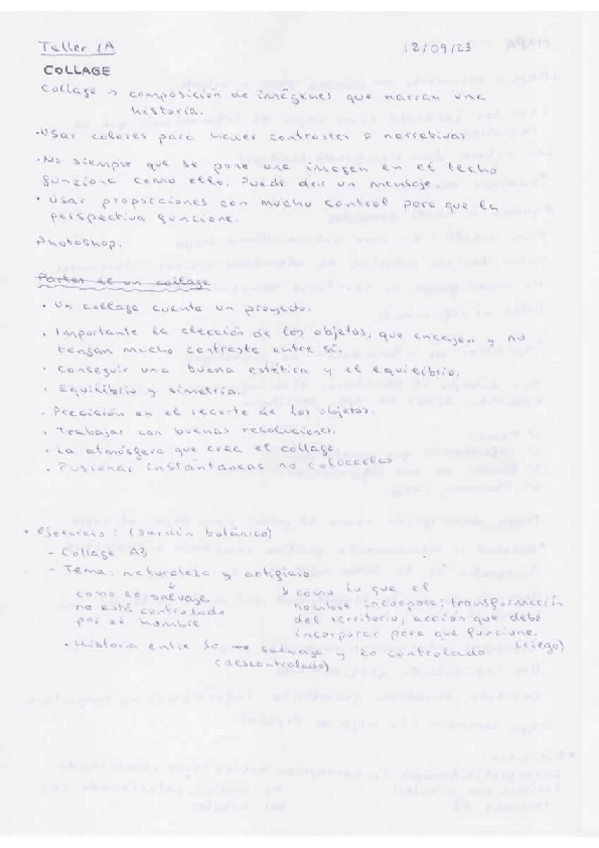 Taller 1A 18/09/23
COLLAGE
Collage → composición de imágenes que narran una
historia.
• Usar colores para hacer contrastes o narrativas
• No siempre que se pone una imagen en el techo
funciona como ello. Puede dar un mensaje.
• Usar proposiciones con mucho control para que la
perspectiva funcione.
Photoshop.
Partes de un collage
• Un collage cuenta un proyecto.
• Importante la elección de los objetos, que encajen y no
tengan mucho contraste entre sí.
• Conseguir una buena estética y el equilibrio.
• Equilibrio y simetría.
• Precisión en el recorte de los objetos.
• Trabajar con buenas resoluciones.
• La atmósfera que crea el collage.
• Fusionar instantaneas no colocarlas
• Ejercicio: (Jardín botánico)
- Collage A3
- Tema: naturaleza y artificio
como lo salvaje
no está controlado
por el hombre
como lo que el
hombre incorpora: transformación
del territorio, acción que debo
incorporar para que funcione.
(riego)
• Historia entre lo salvaje y lo controlado
(descontrolado)